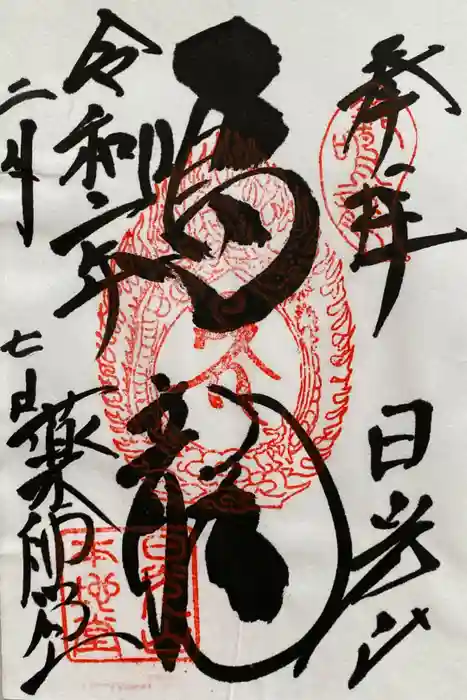 奉拝
日光山
鳴龍
令和二年
二月
七日
薬師堂